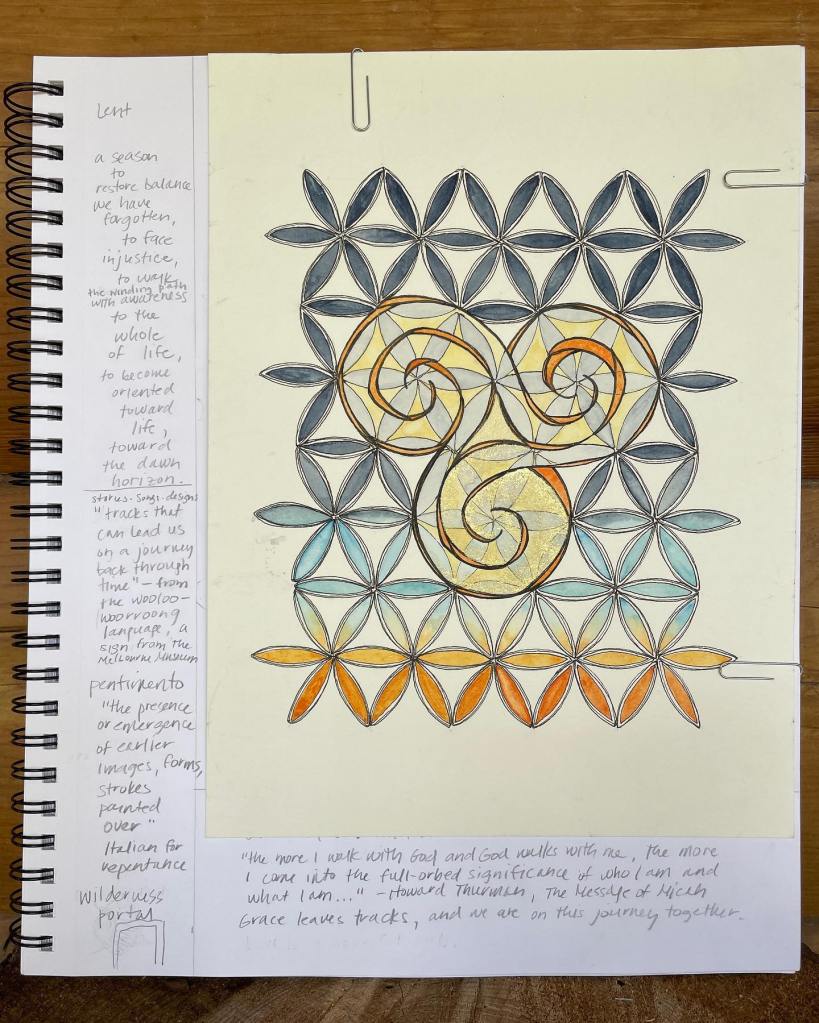 Lent
a season
to
restore balance
we have
forgotten,
to face
injustice,
to walk
the winding path
with awareness
to the
whole
of life,
to become
oriented
toward
life,
toward
the dawn
horizon.
stories. songs. designs
"tracks that
can lead us
on a journey
back through
time" - from
the Wooloo-
woorroong
language, a
sign from the
Melbourne Museum
pentimento
"the presence
or emergence
of earlier
images, forms,
strokes
painted
over"
Italian for
repentance
wilderness
portal
"the more I walk with God and God walks with me, the more
I come into the full-orbed significance of who I am and
what I am..." - Howard Thurman, The Message of Micah
Grace leaves tracks, and we are on this journey together.